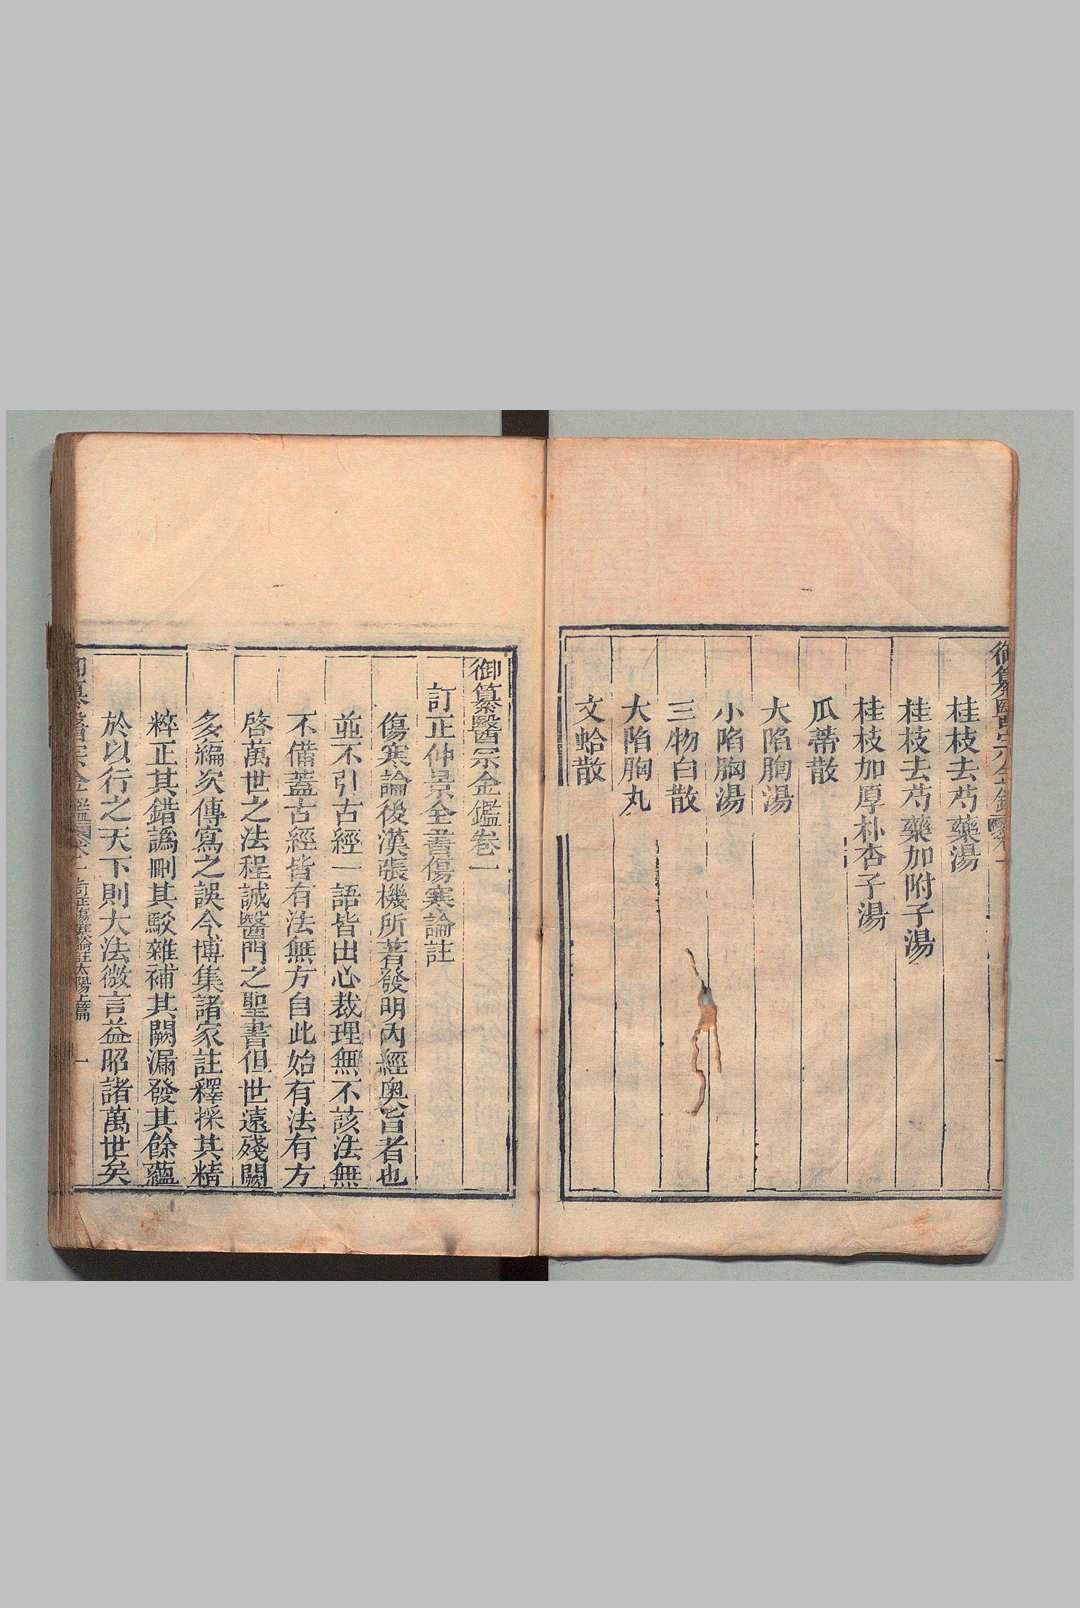 桂枝去芍藥湯
桂枝去芍藥加附子湯
桂枝加厚朴杏子湯
瓜蒂散
大陷胸湯
小陷胸湯
三物白散
大陷胸丸
文蛤散
御纂醫宗金鑑卷一
訂正仲景全書傷寒論註
傷寒論後漢張機所著發明內經奧旨者也
並不引古經一語皆出心裁理無不該法無
不備蓋古經皆有法無方自此始有法有方
啓萬世之法程誠醫門之聖書但世遠殘闕
多編次傳寫之誤今博集諸家註釋採其精
粹正其錯譌刪其駁雜補其闕漏發其餘蘊
於以行之天下則大法微言益昭諸萬世矣